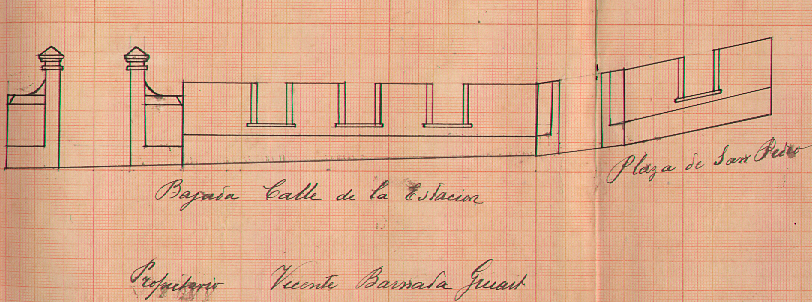 Bajada Calle de la Estacion
Plaza de San Pedro
Propietario Vicente Barnada